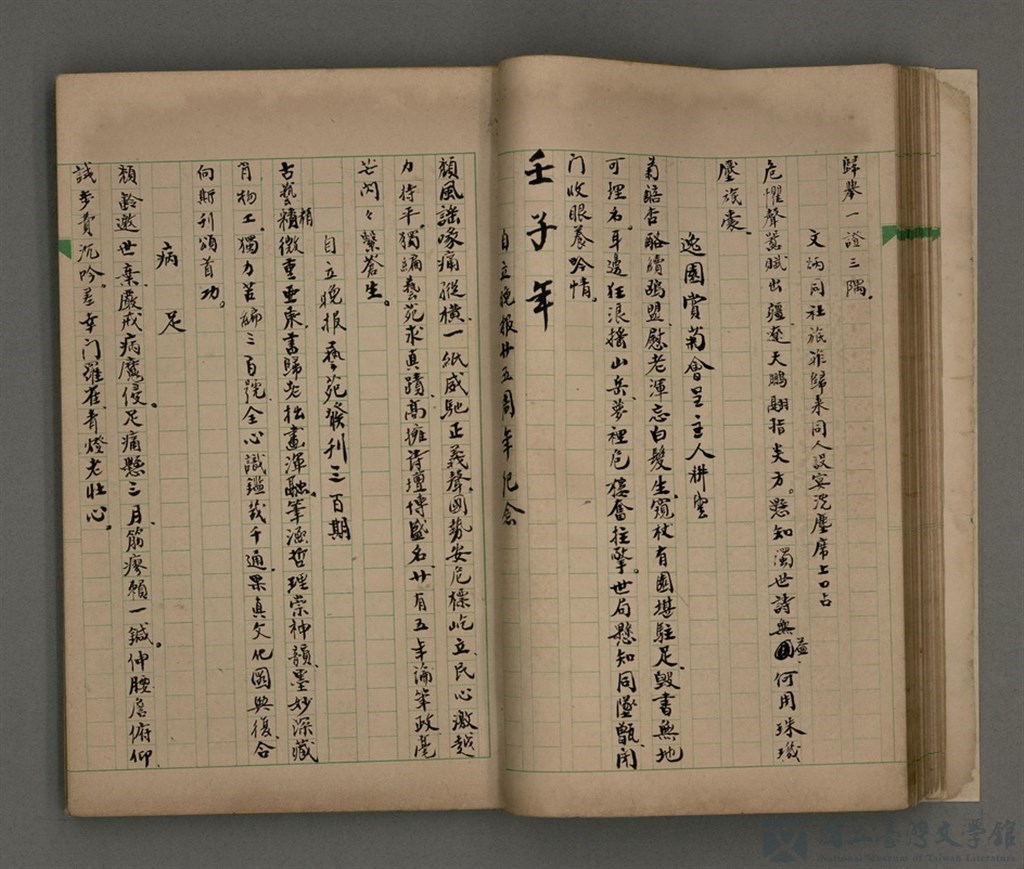 歸舉一證三隅。
文炳同社旅非歸來同人設宴洗塵席上口占
危懼聲囂職出疆遼天鵬翮指炎方。懸知濁世詩無益何用珠璣
壓旅囊。
逸園賞菊會呈主人耕雲
菊醅杏酪續鷗盟慰老渾忘白髮生筇杖有園堪駐足毀書無地
可埋名。耳邊狂浪搖山岳夢裡危樓奮拄擎。世局懸知同墜甑閉
门收眼養吟情。
壬子年
自立晚报廿五周年纪念
頹風謠喙痛縱橫一紙威馳正義聲國勢安危標屹立民心激越
力持平。獨編藝苑求真蹟高擁诗壇博盛名廿有五年論筆政毫
芒闪々繫蒼生。
自立晚报藝苑發刊三百期
古藝精微重亞東書歸老拙畫渾融。筆涵哲理崇神韻墨妙深藏
肖物工。獨力苦编三百號全心識鑑幾千通果真文化圖興復合
向斯刊頌首功。
病足
頹齡邀世棄嚴戒病魔侵。足痛懸三月筋瘳賴一鍼。伸腰詹俯仰
試步費沉吟。差幸门羅雀青燈老壯心。
國立臺灣文學館
National Museum of Taiwan Literature